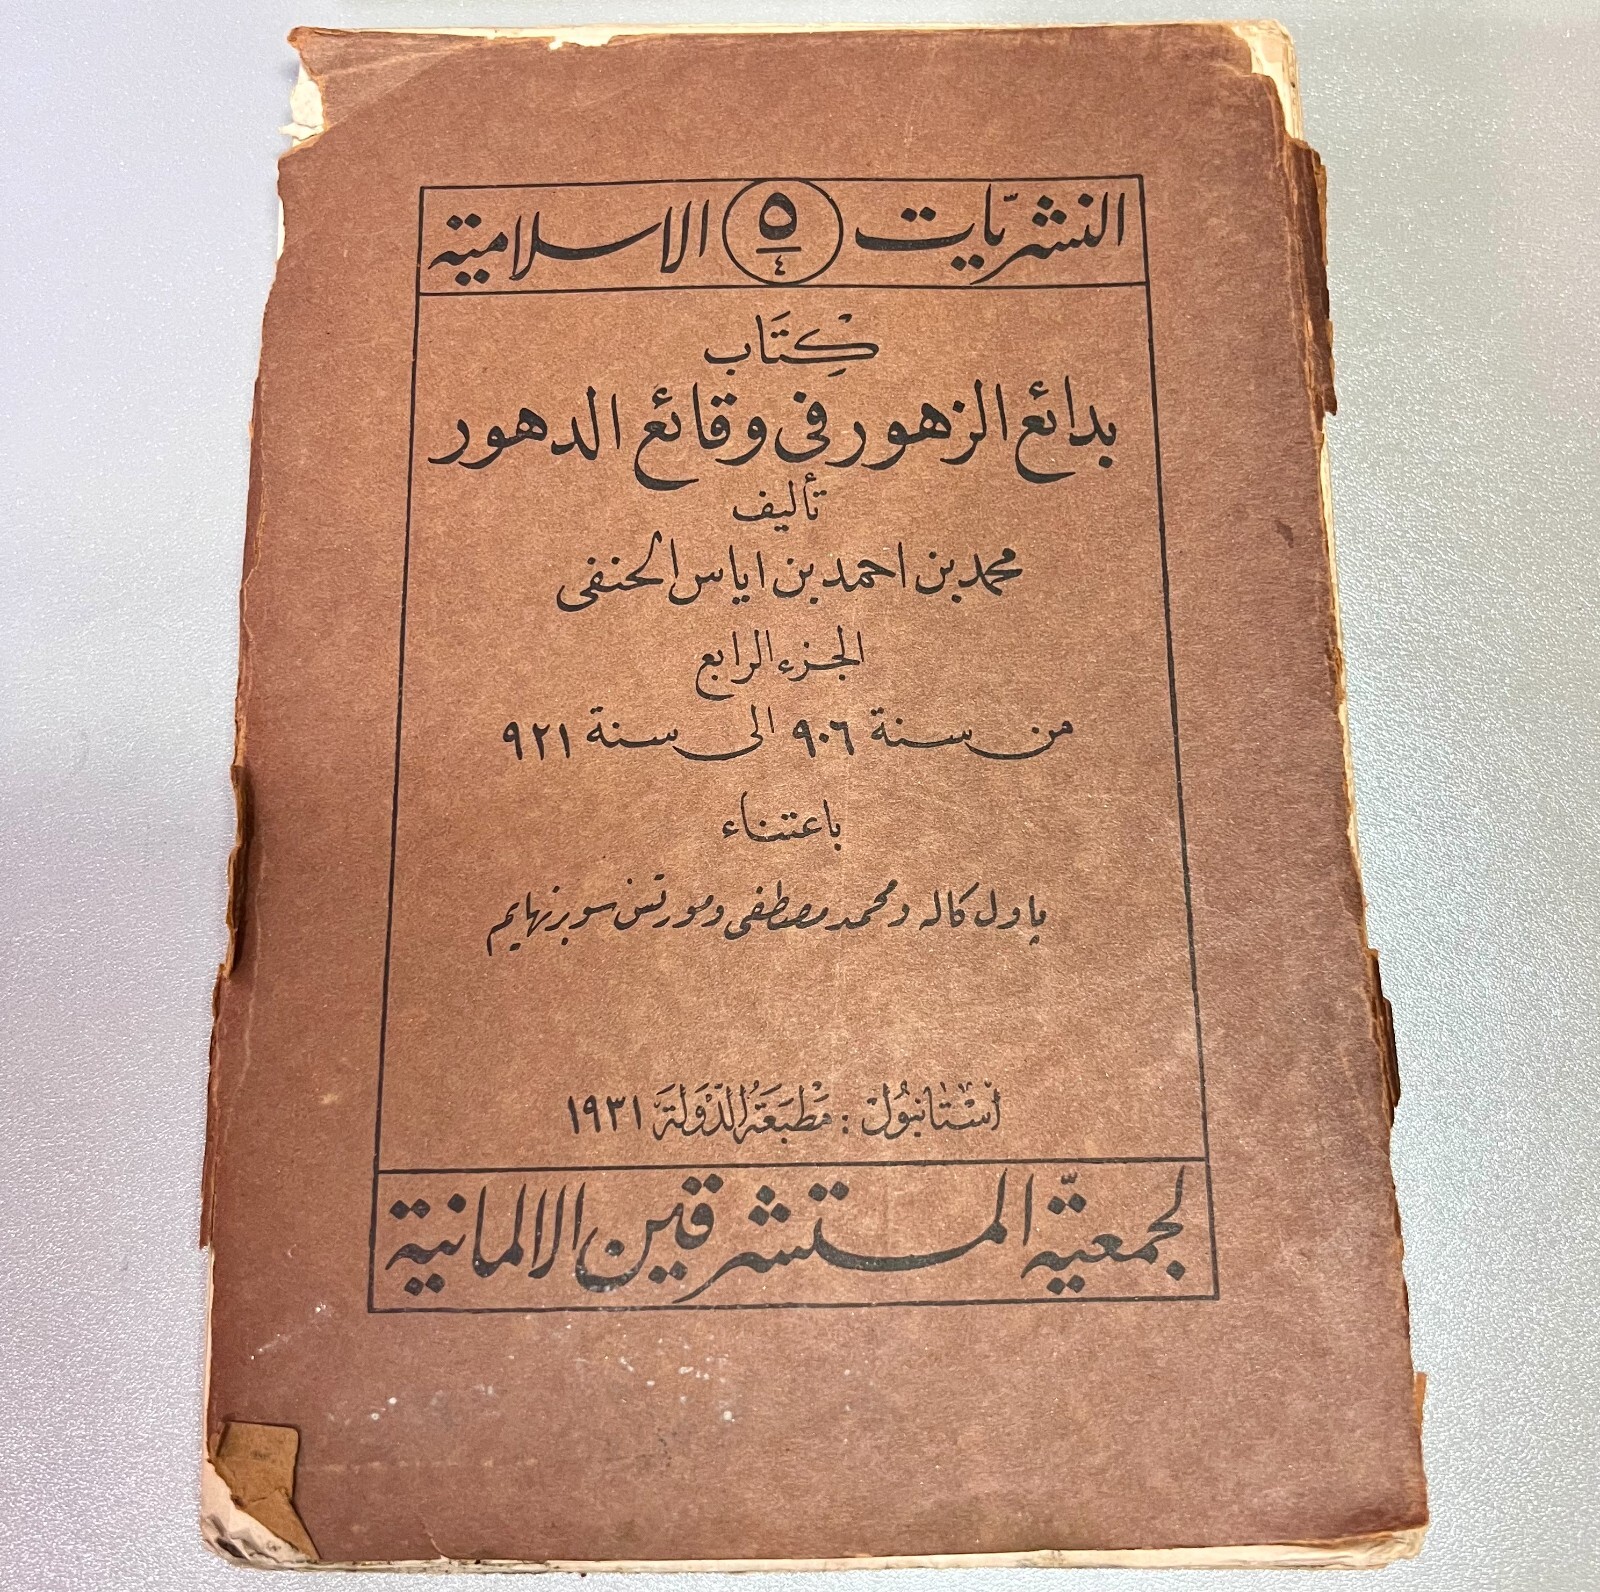 النشريّات ٥/٤ الاسلامية
كتاب
بدائع الزهور فى وقائع الدهور
تأليف
محمد بن احمد بن اياس الحنفى
الجزء الرابع
من سنة ٩٠٦ الى سنة ٩٢١
باعتناء
پاول كاله ومحمد مصطفى ومورتس سوبرنهايم
استانبول : مطبعة الدولة ١٩٣١
لجمعيّة المستشرقين الالمانية